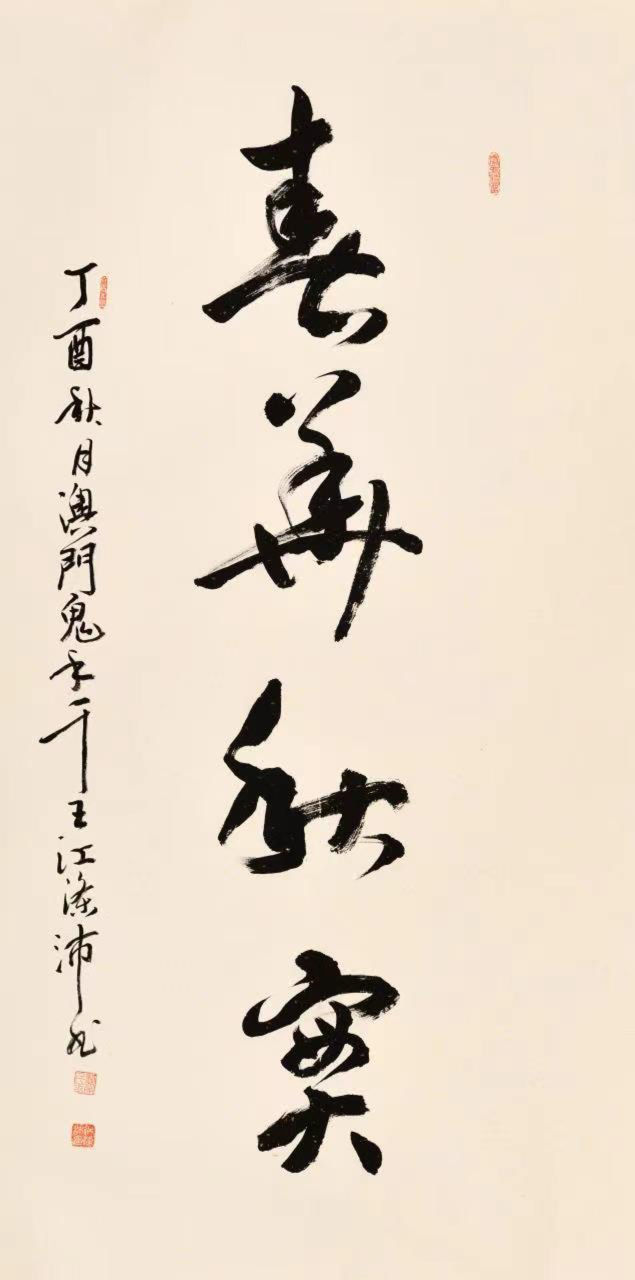 春華秋實
丁酉秋月澳門鬼手一千王江滌沛書